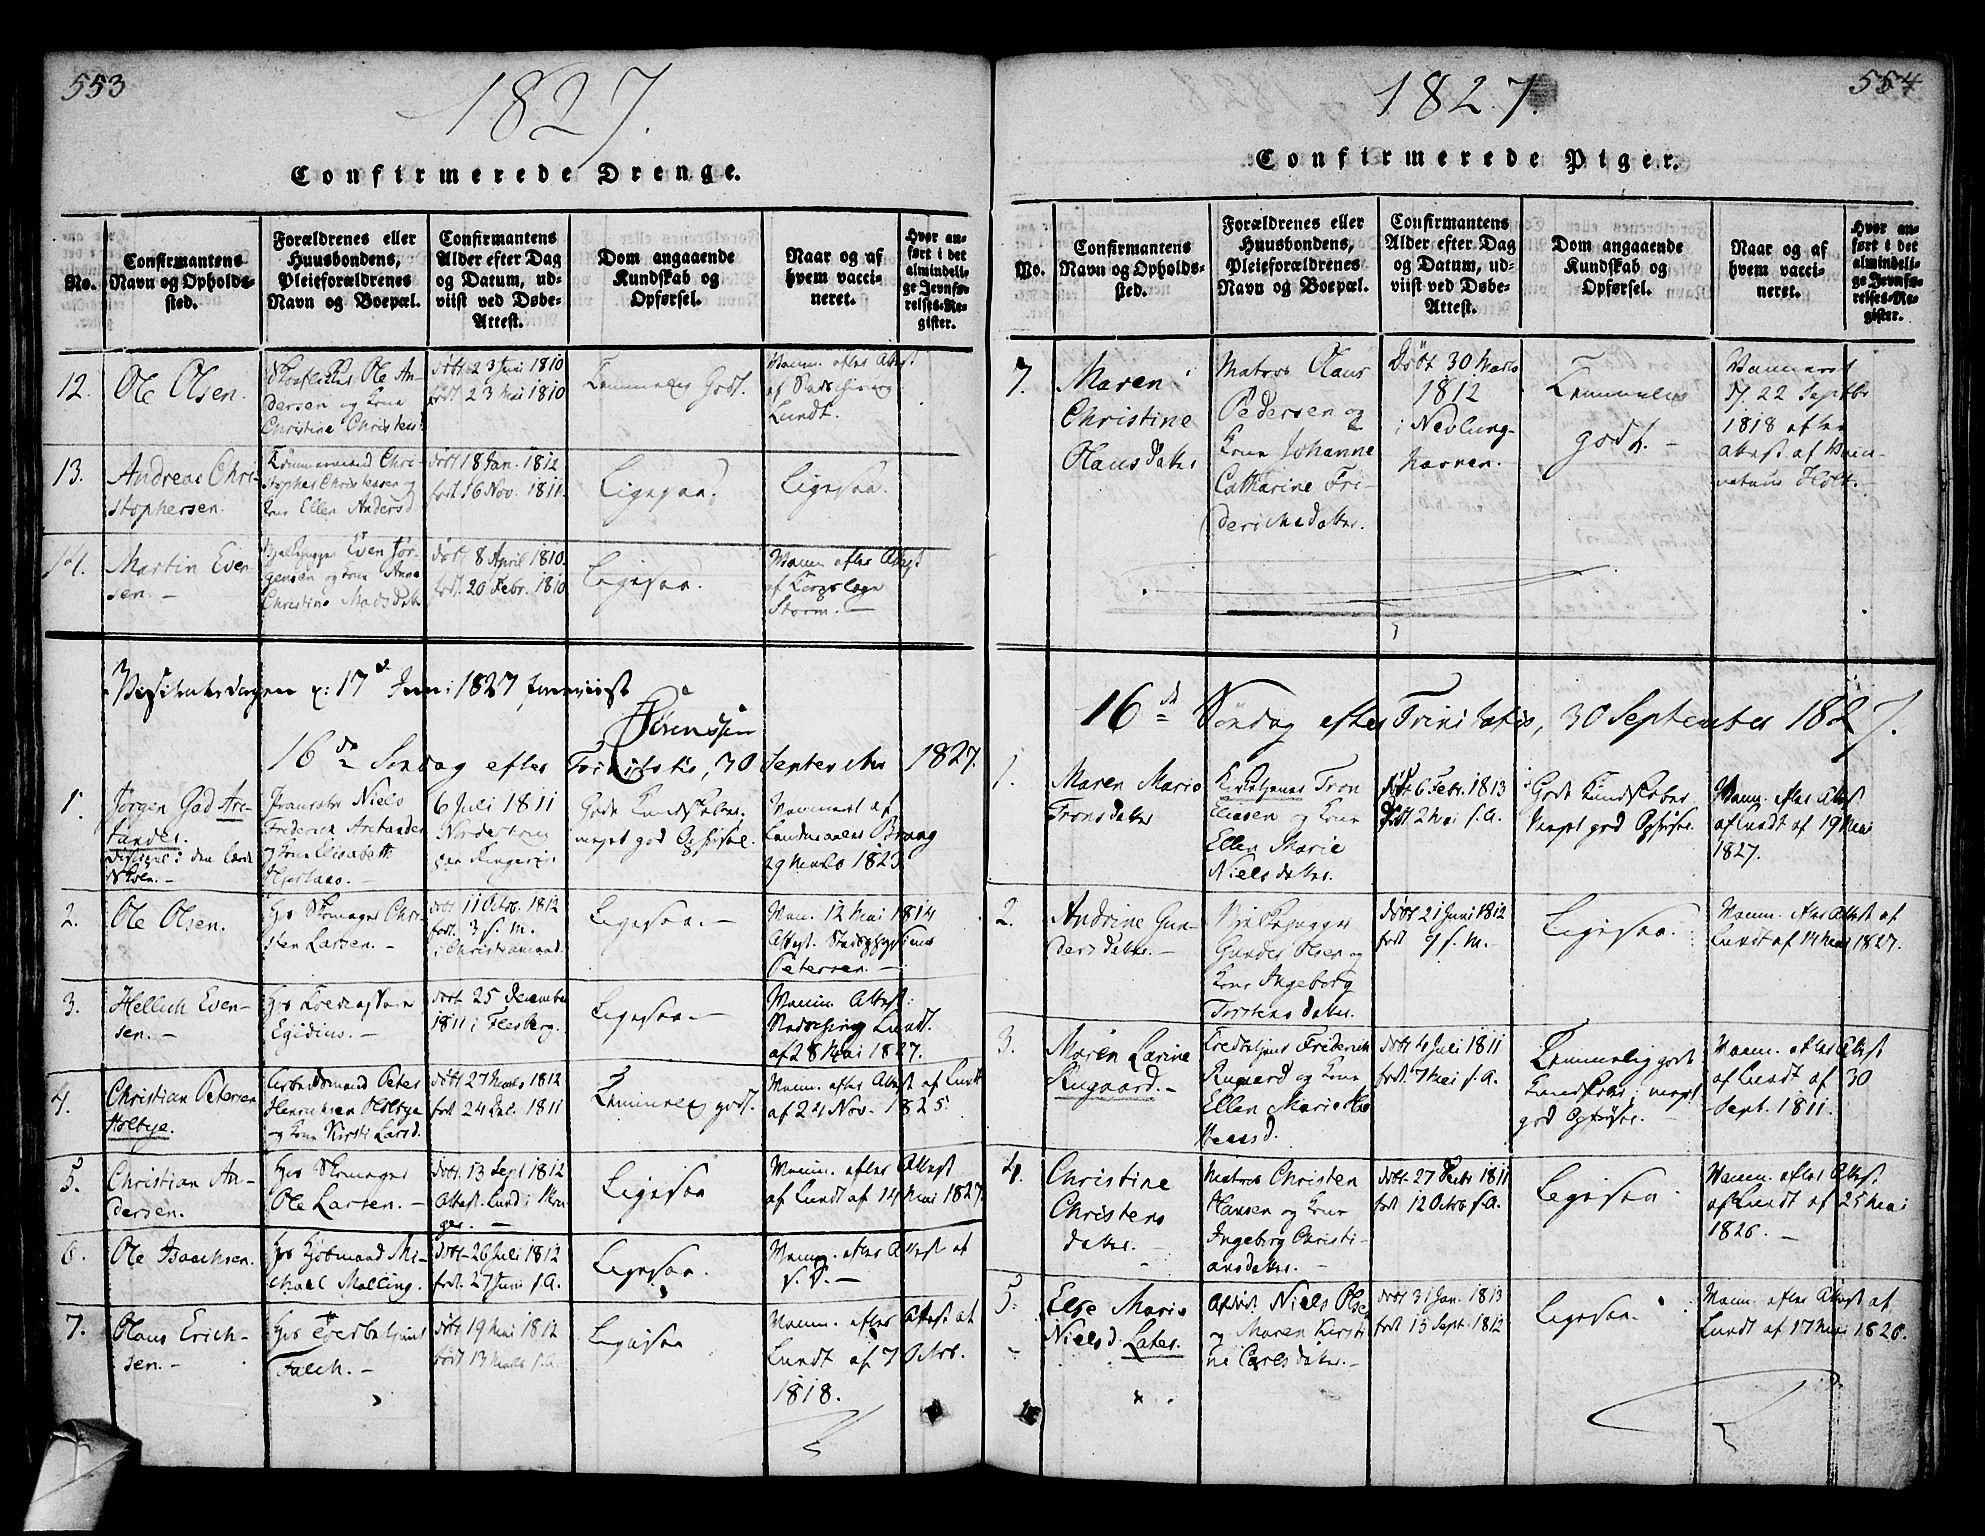 553
1827.
Confirmerede Drenge.
No.
Confirmantens
Navn og Opholds-
sted.
Forældrenes eller
Huusbondens,
Pleieforældrenes
Navn og Boepæl.
Confirmantens
Alder efter Dag
og Datum, ud-
viist ved Døbe-
Attest.
Dom angaaende
Kundskab og
Opførsel.
Naar og af
hvem vacci-
neret.
Hvor an-
ført i det
almindeli-
ge Jevnfø-
relses-Re-
gister.
12.
Ole Olsen.
Ole An-
dersen og Kone
Christine Christens
døbt 23 Juni 1810
født 23 Mai 1810
Temmelig Godt.
Vaccin. efter Attest
af
Lundt.
13.
Andreas Chri-
stophersen.
Chri-
stopher Christensen og
Kone Ellen Andersd
døbt 18 Jan. 1812
født 16 Nov. 1811.
Ligesaa.
Ligesaa.
14.
Martin Even-
sen. -
Even Jør-
gensen og Kone Anne
Christine Madsdatt
døbt 8 April 1810.
født 20 Febr. 1810
Ligesaa.
Vaccin. efter Attest
af
Storm. -
17de Juni 1827
16de Søndag efter Trinitatis, 30 September 1827.
1.
Jørgen Gad Are-
lander.
Niels
Frederik Arelander
og Kone Elisabeth
6 Juli 1811
Norderhoug
paa Ringerige
Gode Kundskaber,
meget god Opførsel.
Vaccineret af
Landmaaler
29 Marts 1823.
2.
Ole Olsen.
hos Skomager Chri-
sten Larsen. -
døbt 11 Octob. 1812
født. 3 s. M.
i Christiansand.
Ligesaa. -
Vacc. 12 Mai 1814
Attest. Stadsphysicus
Petersen. -
3.
Hellich Even-
sen. -
hos
Egidius. -
døbt 25 December
1811 i Flesberg.
Ligesaa. -
Vaccin. Attest.
Lundt.
af 28 Mai 1827.
4.
Christian Petersen
Holbye.
Arbeidsmand Peter
Henrichsen Holbye
og Kone Kirsti Larsd.
døbt 27 Marts 1812
født 24 Dec. 1811
Temmelig godt.
Vaccin. efter Attest af Lundt
af 24 Nov. 1825.
5.
Christian An-
dersen.
hos Skomager
Ole Larsen. -
døbt. 13 Sept 1812
Attest. Lund i
ger. -
Ligesaa
Vaccin. efter Attest
af Lundt af 14 Mai 1827.
6.
Ole Isachsen.
hos Kjøbmand Mi-
chael Malling.
døbt 26 Juli 1812
født. 27 Juni s.A.
Ligesaa.
Vaccin. efter Attest af
s. D. -
7.
Olaus Erich-
sen. -
hos
Falch. -
døbt. 19 Mai 1812
født 13 Marts s.A.
Ligesaa
Vaccin. efter Attest af
Lundt af 7 Octob.
1818.
554
1827.
Confirmerede Piger.
No.
Confirmantens
Navn og Opholds-
sted.
Forældrenes eller
Huusbondens,
Pleieforældrenes
Navn og Boepæl.
Confirmantens
Alder efter Dag
og Datum, ud-
viist ved Døbe-
Attest.
Dom angaaende
Kundskab og
Opførsel.
Naar og af
hvem vacci-
neret.
Hvor an-
ført i det
almindeli-
ge Jevnfø-
relses-Re-
gister.
7.
Maren
Christine
Olausdatter
Matros Olaus
Pedersen og
Kone Johanne
Catharine Fri-
derichsdatter.
Døbt 30 Marts
1812
i Nevlung-
havnen.
Temmelig
godt. -
Vaccineret
d. 22 Septbr
1818 efter
Attest af
Holt. -
16de Søndag efter Trinitatis, 30 September 1827.
1.
Maren Marie
Tronsdatter
Tron
Eliasen og Kone
Ellen Marie
Nielsdatter.
døbt 6 Febr. 1813
født. 2 Mai s.A.
Gode Kundskaber
Meget god Opførsel.
Vaccin. efter Attest
af Lundt af 19 Mai
1827.
2.
Andrine Gun-
dersdatter. -
Gunder Olsen og
Kone Ingeborg
Torstensdatter.
døbt 21 Juni 1812
født 9 s. M.
Ligesaa.
Vaccin. efter Attest af
Lundt af 14 Mai 1827.
3.
Maren Larine
Rugaard. -
Frederik
Rugaard og Kone
Ellen Marie
døbt 4 Juli 1811
født. 7 Mai s.A.
Temmelig gode
Kundskaber, meget
god Opførsel.
Vaccin. efter Attest
af Lundt af 30
Sept. 1811.
4.
Christine
Christens
datter.
Matros Christen
Hansen og Kone
Ingeborg Christi-
ansdatter. -
døbt 27 Decbr 1811
født 12 Octob. s.A.
Ligesaa.
Vaccin. efter Attest
af Lundt af 25 Mai
1826. -
5.
Else Marie
Nielsd. Later.
Niels Olsen
og Maren Kirsti-
ne Carlsdatter. -
døbt 31 Jan. 1813
født 15 Sept. 1812
Ligesaa.
Vaccin. efter Attest af
Lundt af 17 Mai 1826.